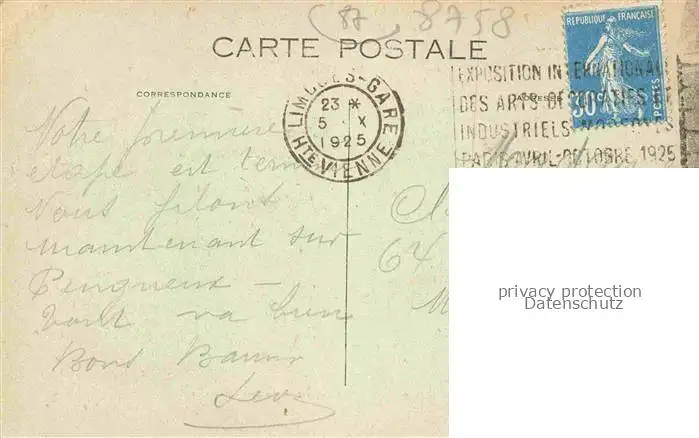 87 8758
CARTE POSTALE
REPUBLIQUE FRANÇAISE
POSTES
CORRESPONDANCE
LIMOGES-GARE
23 *
5 · X
1925
HTE VIENNE
EXPOSITION INTERNATIONALE
DES ARTS DECORATIFS
INDUSTRIELS MODERNES
PARIS AVRIL-OCTOBRE 1925
Notre première
étape est
Nous filons
maintenant sur
Perigueux —
tout va bien
Bons Baisers
Leo
64
privacy protection
Datenschutz